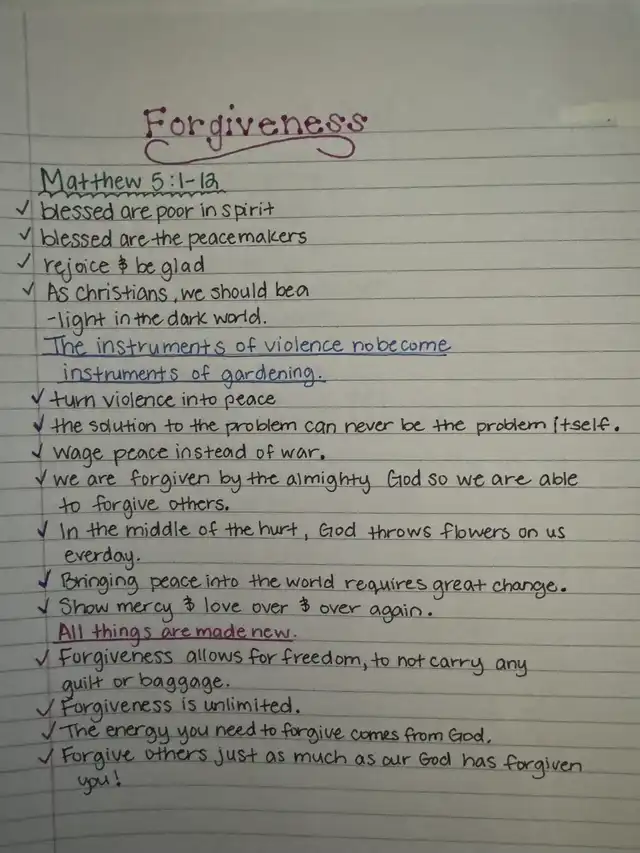 Forgiveness
Matthew 5:1-12
✓ blessed are poor in spirit
✓ blessed are the peacemakers
✓ rejoice & be glad
✓ As christians, we should be a
-light in the dark world.
The instruments of violence nobecome
instruments of gardening.
✓ turn violence into peace
✓ the solution to the problem can never be the problem itself.
✓ wage peace instead of war.
✓ we are forgiven by the almighty God so we are able
to forgive others.
✓ In the middle of the hurt, God throws flowers on us
everday.
✓ Bringing peace into the world requires great change.
✓ Show mercy & love over & over again.
All things are made new.
✓ Forgiveness allows for freedom, to not carry any
guilt or baggage.
✓ Forgiveness is unlimited.
✓ The energy you need to forgive comes from God.
✓ Forgive others just as much as our God has forgiven
you!